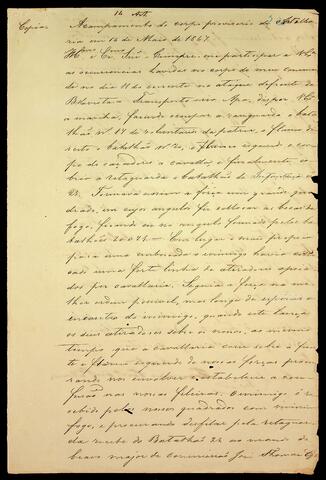 14 Art.
Copia. Acampamento do corpo provisorio de Artilha
ria em 14 de Maio de 1867.
Illmo e Exmo Snr. Cumpre-me participar a V. Ex.
as occurrencias havidas no corpo de meu comman
do no dia 11 do corrente no ataque defronte da
Bella vista. Transposto o rio Apa, dispoz V. Ex.
a marcha, fazendo occupar a vanguarda o bata
lhão nº 17 de voluntarios da patria, o flanco di
reito o batalhão nº 20, o flanco esquerdo o cor
po de caçadores a cavallo, e finalmente co
bria a retaguarda o batalhão de Infantaria nº
21. Formava assim a força um grande qua
drado, em cujos angulos foi collocar as bocas de
fogo, ficando eu no angulo formado pelos ba
talhões 20 e 21. Em lugar o mais proprio
para uma emboscada o inimigo havia collo
cado uma forte linha de atiradores apoia
dos por cavallaria. Seguia a força na me
lhor ordem possivel, mas longe de esperar o
encontro do inimigo, quando este lança
os seus atiradores sobre os nossos, ao mesmo
tempo que a cavallaria corre sobre a fren
te e flanco esquerdo de nossas forças procu
rando nos envolver e estabelecer a con
fusão nas nossas fileiras. O inimigo é re
cebido pelos nossos quadrados com vivissimo
fogo, e procurando desfilar pela retaguar
da recebe do Batalhão 21 ao mando do
bravo major de commissão José Thomaz